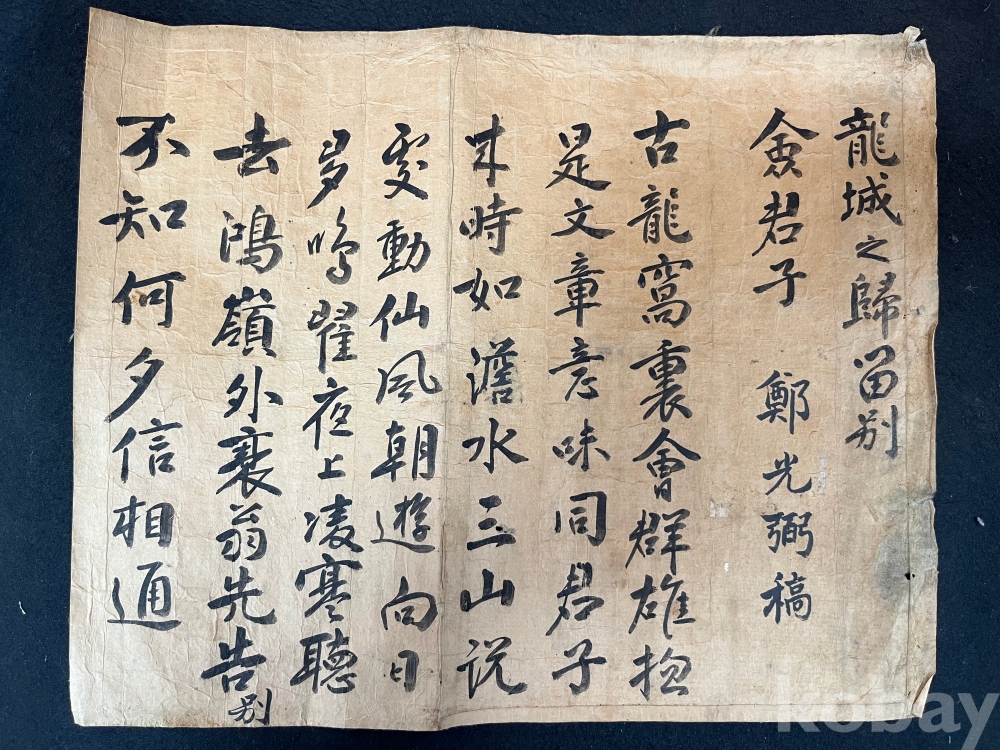 龍城之歸留别
僉君子 鄭光弼稿
古龍窩裏會群雄揔
是文章意味同君子
来時如澹水三山說
處動仙風朝遊向日
多鳴翟夜上凌寒聽
去鴻嶺外衰翁先告别
不知何夕信相通
kobay